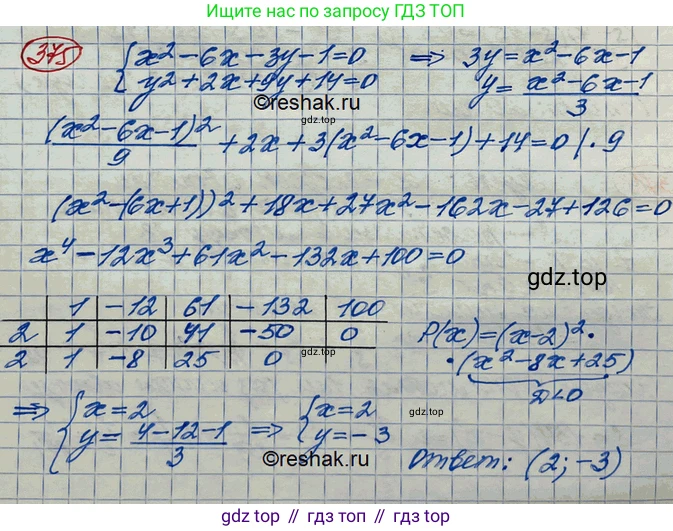 Ищите нас по запросу ГДЗ ТОП
375
{x² − 6x − 3y − 1 = 0 ⇒ 3y = x² − 6x − 1
{y² + 2x + 9y + 14 = 0 y = (x² − 6x − 1)/3
©reshak.ru
(x² − 6x − 1)²/9 + 2x + 3(x² − 6x − 1) + 14 = 0 | · 9
(x² − (6x + 1))² + 18x + 27x² − 162x − 27 + 126 = 0
x⁴ − 12x³ + 61x² − 132x + 100 = 0
gdz.top
1 −12 61 −132 100
2 1 −10 41 −50 0
2 1 −8 25 0
P(x) = (x − 2)² ·
· (x² − 8x + 25)
D < 0
gdz.top
⇒ {x = 2 ⇒ {x = 2
{y = (4 − 12 − 1)/3 {y = −3
©reshak.ru
Ответ: (2; −3)
gdz.top // гдз.top // гдз.топ